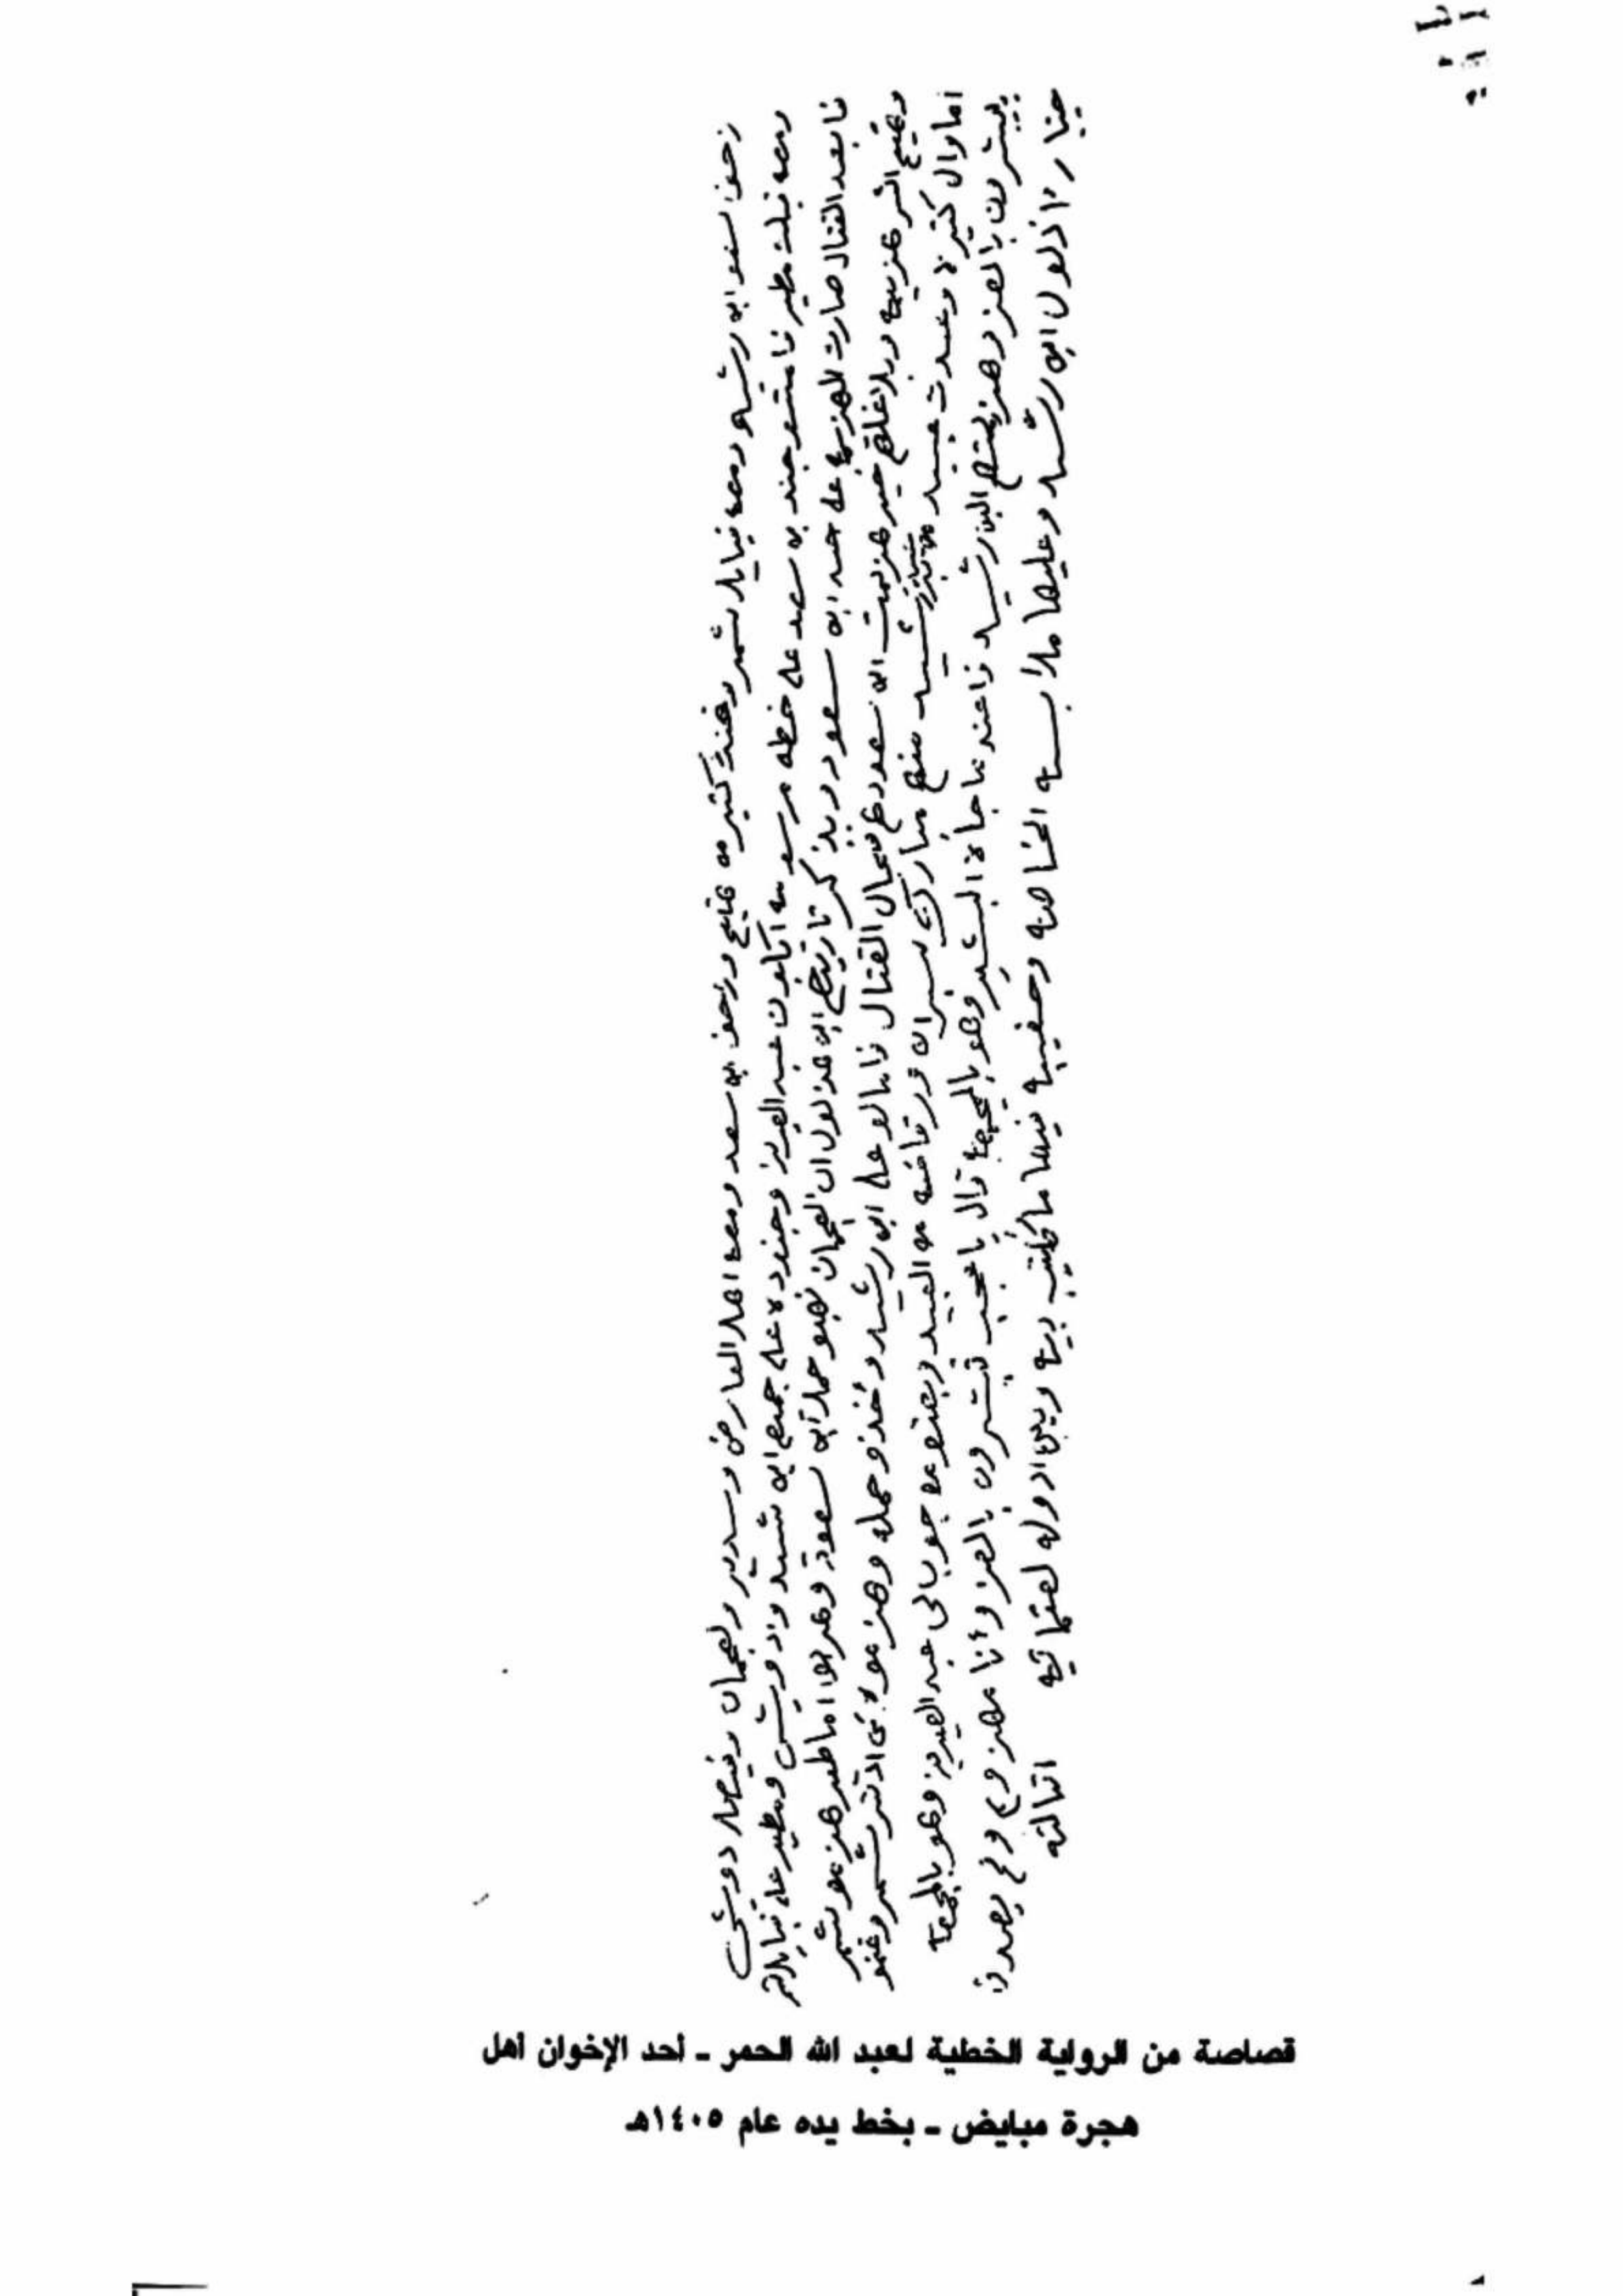 زحف سعود ابن رشيد ومعه قبايل شمر كثير من هتيم وزحف بن سعد ومعه اهل العارض وسدير ولعجمان وفيصل دويش
ومعه قبلت مطير جند بن سعد على خطه مرسومه عبد العزيز وجنوده على جميع ابن رشيد وادويش ومطير على قبايل شمر
فا بعد القتال صارت الهزيمه على جند ابن سعود ويذكر تاريخ ابن هذلول ان العجمان نهبو حملة ابن سعود وهربوا اما طير هزمو شمر
وهتيم اشر هزيمه خبر هزيمت ابن سعود وهم فيحال القتال فا مالو على ابن رشيد وخذو حمله وهزموه شمر وغنمو
اموال كثيره وعبدت عبيد رشيد منهم مبارك من العبيد عبد العزيز وهو بالمجمعه
يبشرون بالعز وهزيمتهم البن رشيد فا عند ما جاه البشير وهو بالمجمع قال يا عجب تبشرون بالعز وأنا مهزوم يصدق
اذلول ابن رشيد وعليها ملابسه الخاصه وحقيبه فيها مكاتيب بينه وبين ادوله لعثمانيه اثالثه
قصاصة من الرواية الخطية لعبد الله الحمر ـ أحد الإخوان أهل
هجرة مبايض ـ بخط يده عام ١٤٠٥هـ